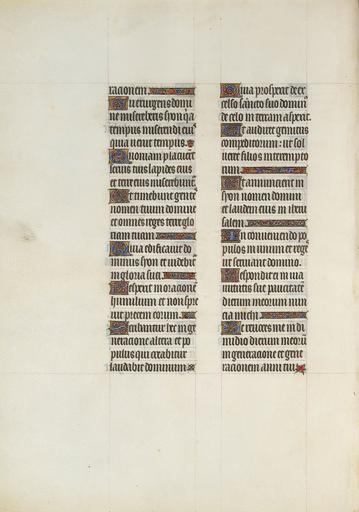 racionem.
Tu exurgens domi
ne misereberis syon quia
tempus miserendi eius
quia uenit tempus.
Quoniam placuert
seruis tuis lapides eius
et terre eius miserebunt.
Et timebunt gentes
nomen tuum domine
et omnes reges terre glo
riam tuam.
Quia edificauit do
minus syon et uidebit
in gloria sua.
Respexit in oracionem
humilium et non spre
uit precem eorum.
Scribantur hec in ge
neracione altera et po
pulus qui creabitur
laudabit dominum
Quia prospexit de ex
celso sancto suo dominus
de celo in terram aspexit.
Et audiret gemitus
compeditorum: ut sol
ueret filios interempto
rum
Et annuncient in
syon nomen domini
et laudem eius in iheru
salem
In conueniendo po
pulos in unum et reges
ut seruiant domino.
Respondit ei in uia
uirtutis sue paucitatem
dierum meorum nun
cia michi.
Ne reuoces me in di
midio dierum meorum
in generacione et gene
racionem anni tui.